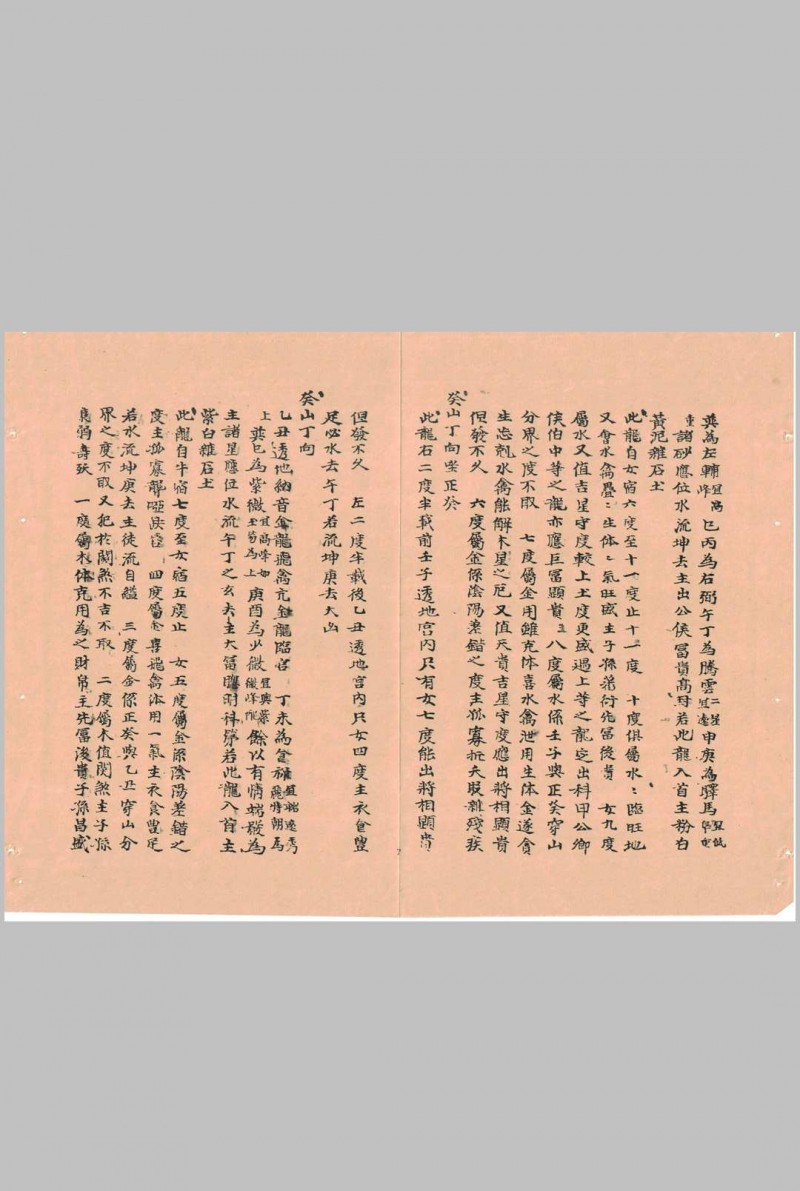 巽為左輔宜高峰巳丙為右弼午丁為騰雲二星宜遠申庚為驛馬
重諸砂應位水流坤去主出公侯富貴高母若此龍入首主粉白
黃泥雜石土
此龍自女宿六度至十一度止十一度 十度俱屬水:臨旺地
又會水禽疊:生体:氣旺盛主子孫蕃衍先富後貴 女九度
屬水又值吉星守度較上土度更盛遇上等之龍定出科甲公卿
侯伯中等之龍亦應巨富顯貴 八度屬水係壬子與正癸穿山
分界之度不取 七度屬金用雖克体喜水禽泄用生体金遂貪
生忘剋水禽能解木星之厄又值天貴吉星守度應出將相顯貴
但發不久 六度屬金係陰陽差錯之度主孤寡折夭股雜殘疾
癸山丁向坐正癸
此龍右二度半載前壬子透地宫内只有女七度能出將相顯貴
但發不久 左二度半載後乙丑透地宫内只女四度主衣食豐
足必水去午丁若流坤庚去大凶
癸山丁向
乙丑透地納音金龍飛禽亢金龍臨官 丁未為
上 巽巳為紫微宜高峰如玉笏為上庚酉為少微 餘以有情端嚴為
主諸星應位水流午丁之玄去主大富應財科第若此龍入首主
紫白雜石土
此龍自牛宿七度至女宿五度止 女五度屬金係陰陽差錯之
度主孤寡聾啞跌 四度屬金 飛禽体用一氣主衣食豐足
若水流坤庚去主徒流自縊 三度屬金係正癸與乙丑穿山分
界之度不取又犯於関煞不吉不取 二度屬木值関煞主子孫
 壽殀 一度屬木体克用為之財帛主先富後貴子孫昌盛